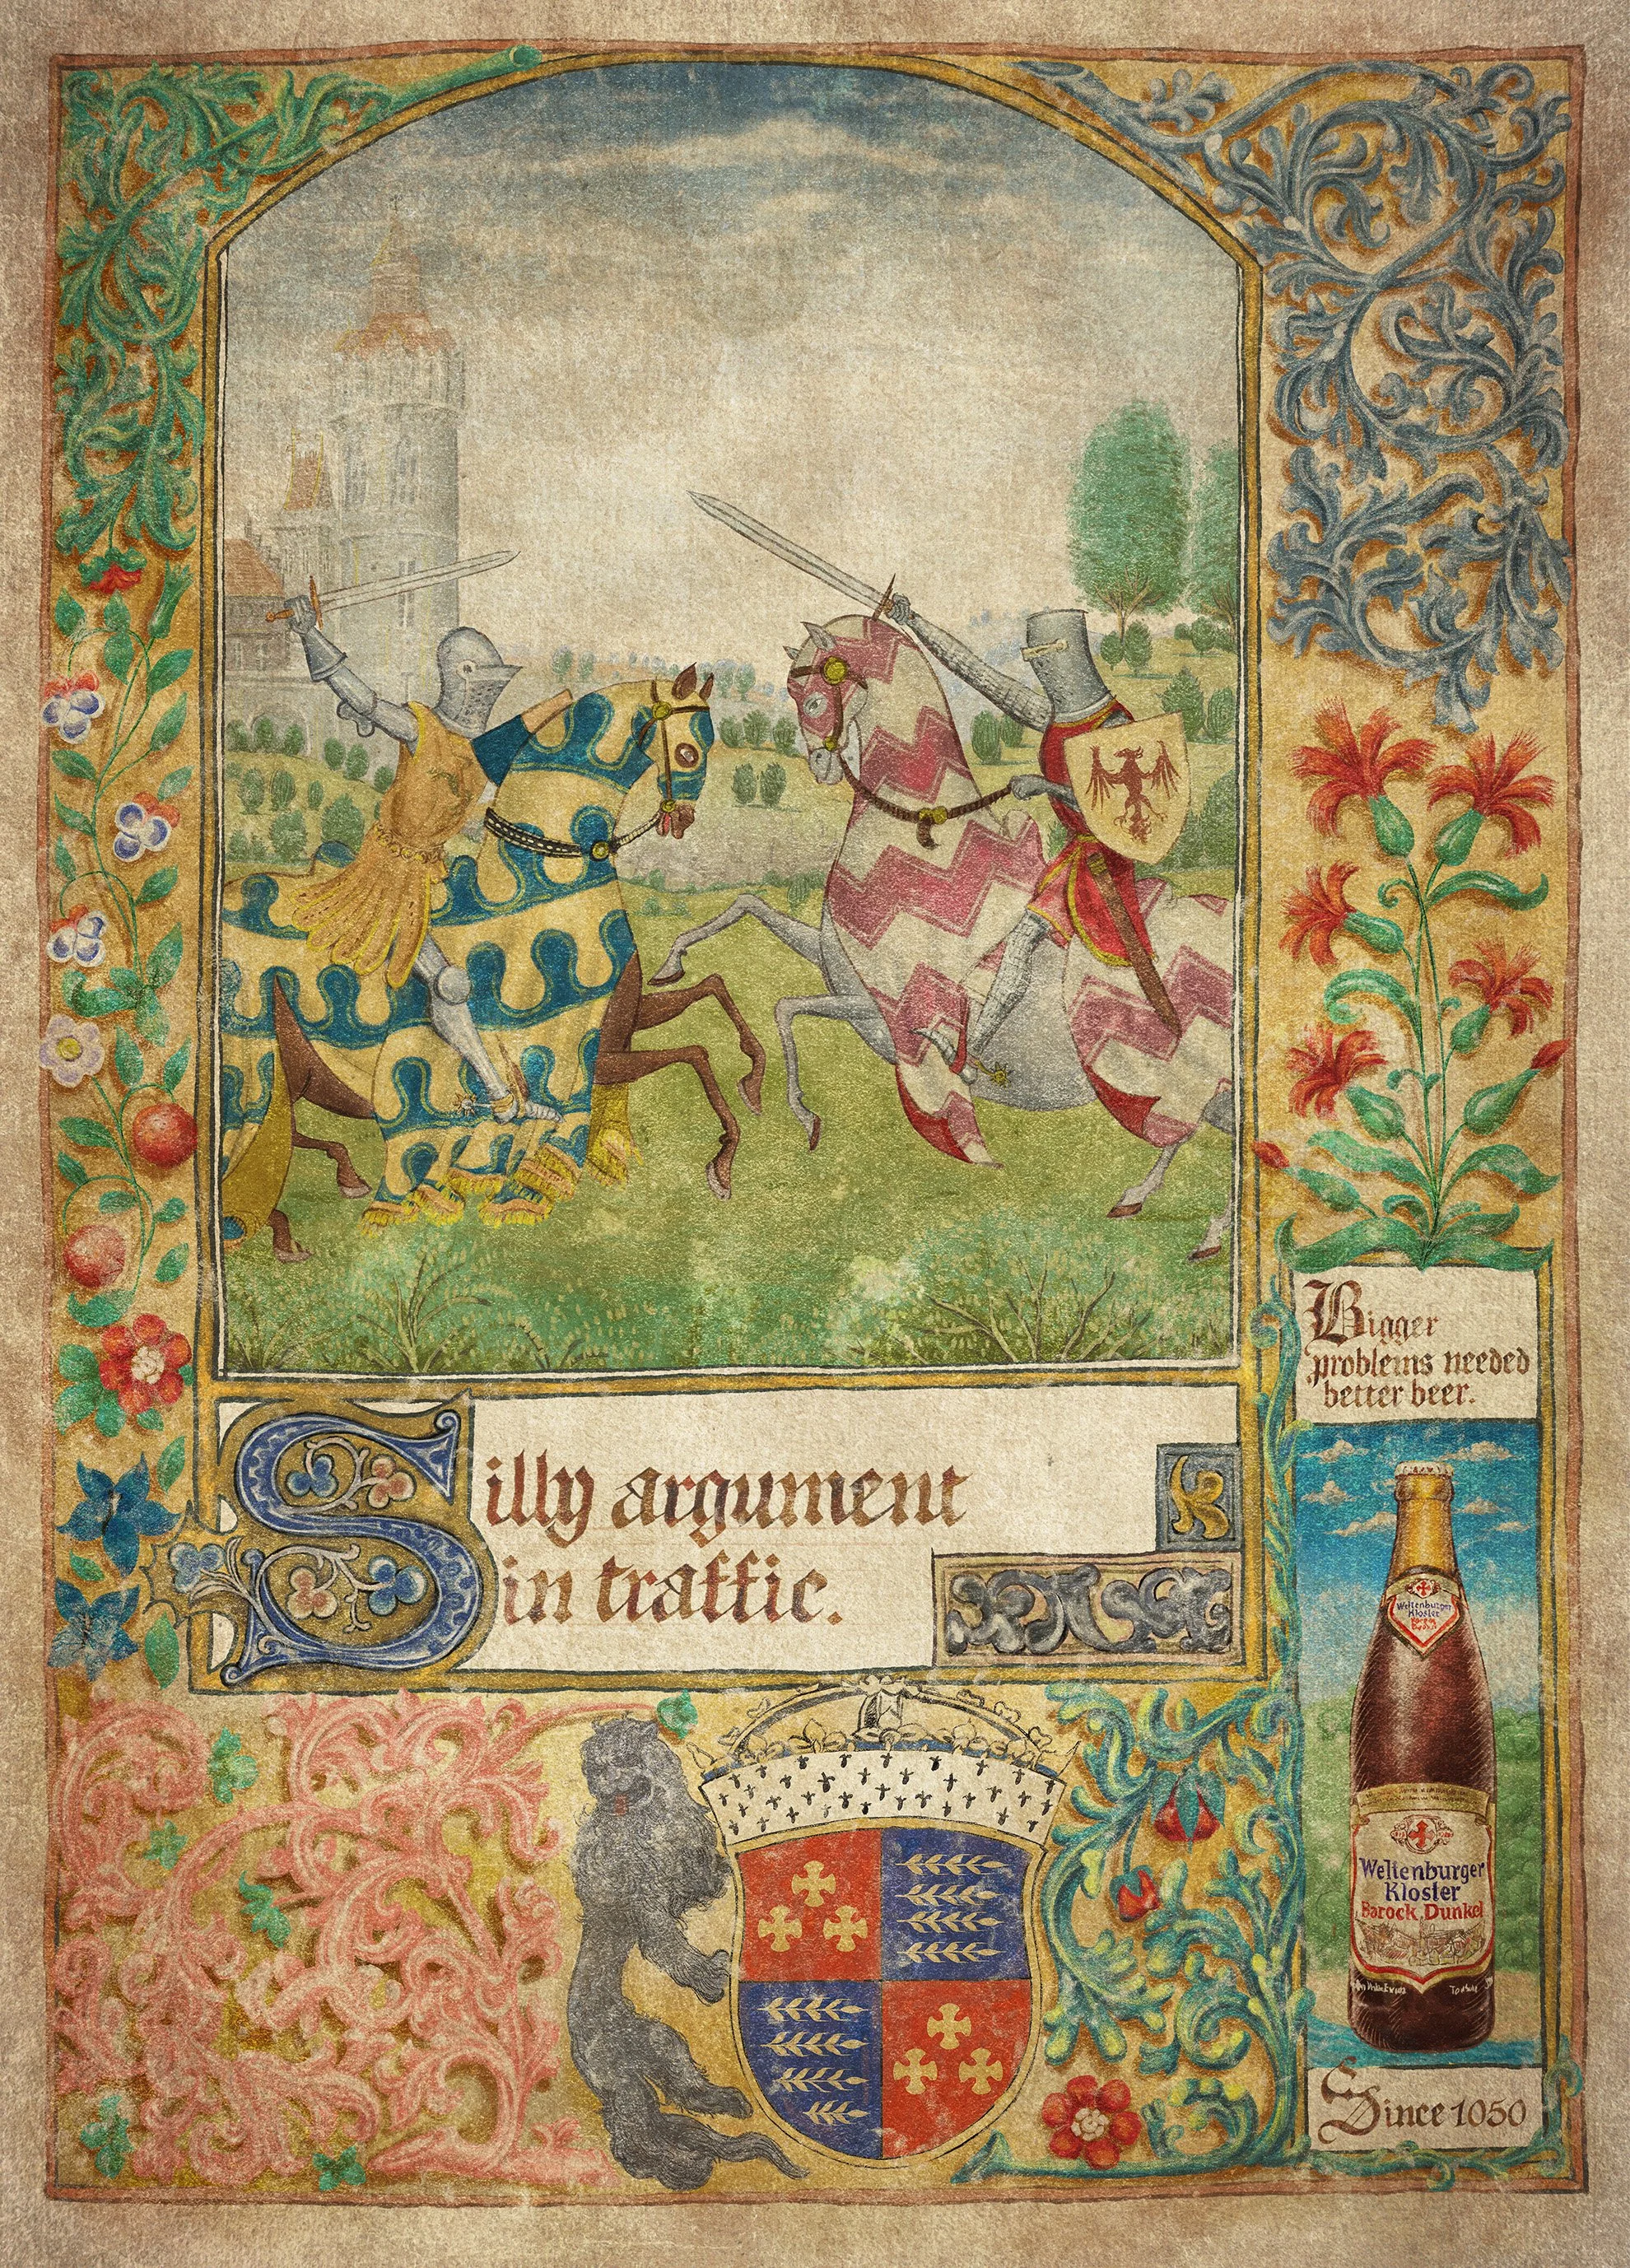 Bigger
problems needed
better beer.
Silly argument
in traffic.
Weltenburger
Kloster
Barock Dunkel
Weltenburger
Kloster
Barock Dunkel
Since 1050